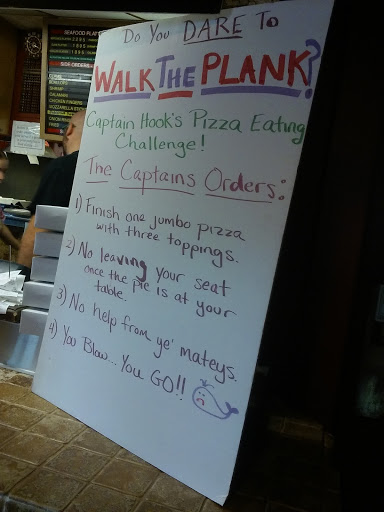 Do You DARE To
WALK THE PLANK?
Captain Hook's Pizza Eating
Challenge!
The Captains Orders:
1) Finish one jumbo pizza
with three toppings.
2) No leaving your seat
once the pie is at your
table.
3) No help from ye' mateys.
4) You Blow... You GO!!
SEAFOOD PLAT
SIDE ORDERS
SHRIMP
CALAMARI
CHICKEN FINGERS